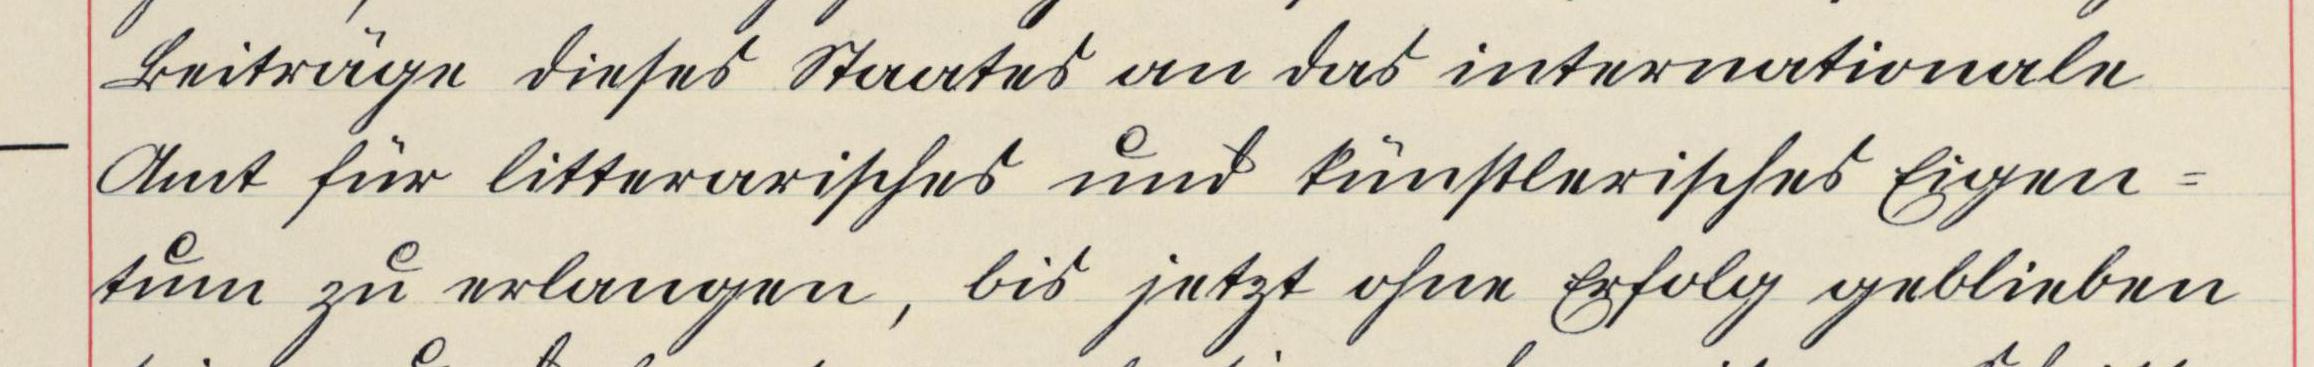 Beiträge dieses Staates an das internationale
Amt für litterarisches und künstlerisches Eigen=
tum zu erlangen, bis jetzt ohne Erfolg geblieben